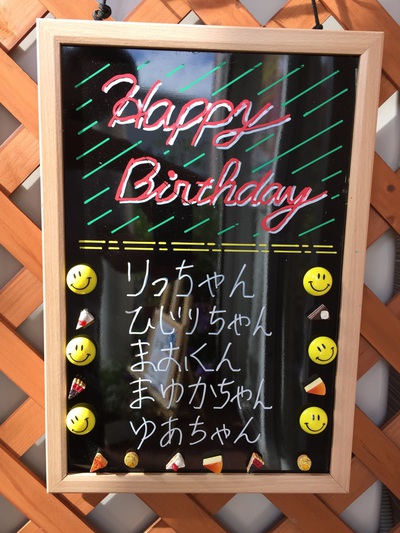 Happy
Birthday
りっちゃん
ひじりちゃん
まおくん
まゆかちゃん
ゆあちゃん